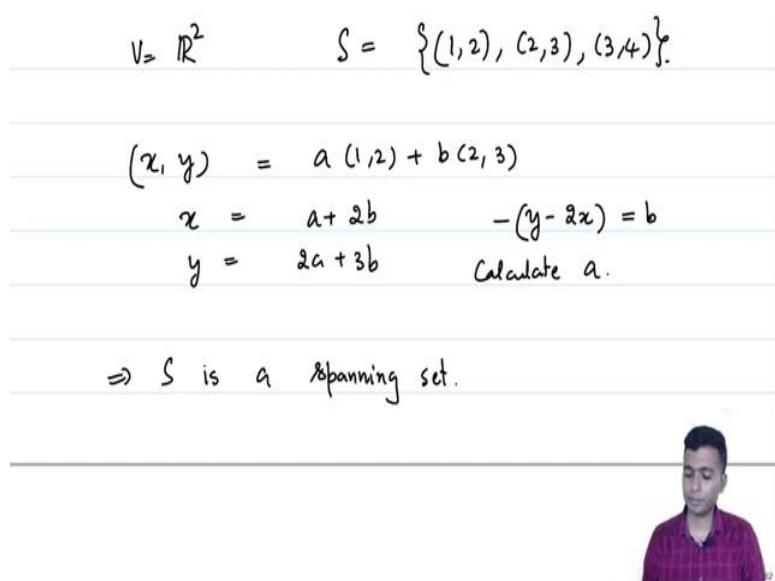 V= ℝ² S = {(1,2), (2,3), (3,4)}.
(x, y) = a (1,2) + b (2, 3)
x = a+ 2b -(y - 2x) = b
y = 2a + 3b Calculate a.
⇒ S is a spanning set.